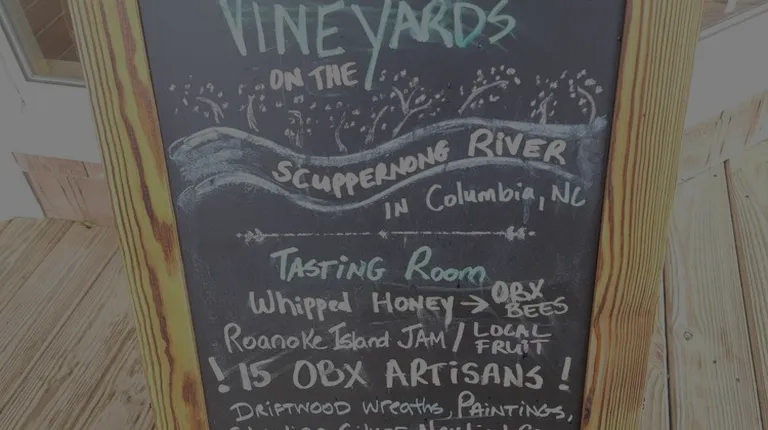 VINEYARDS
ON THE
SCUPPERNONG RIVER
IN Columbia, NC
TASTING ROOM
Whipped Honey → OBX BEES
Roanoke Island JAM / LOCAL FRUIT
! 15 OBX ARTISANS !
DRIFTWOOD WREATHS, PAINTINGS,